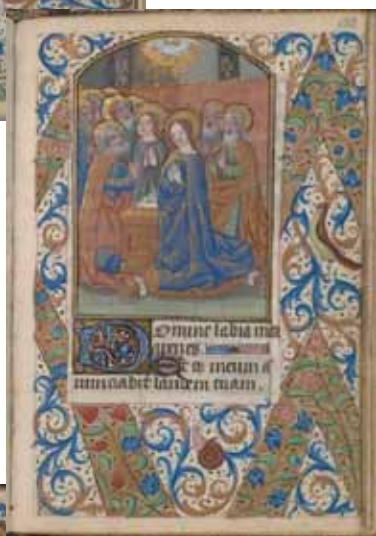 Domine labia mea
aperies
Et os meum a
nunciabit laudem tuam.